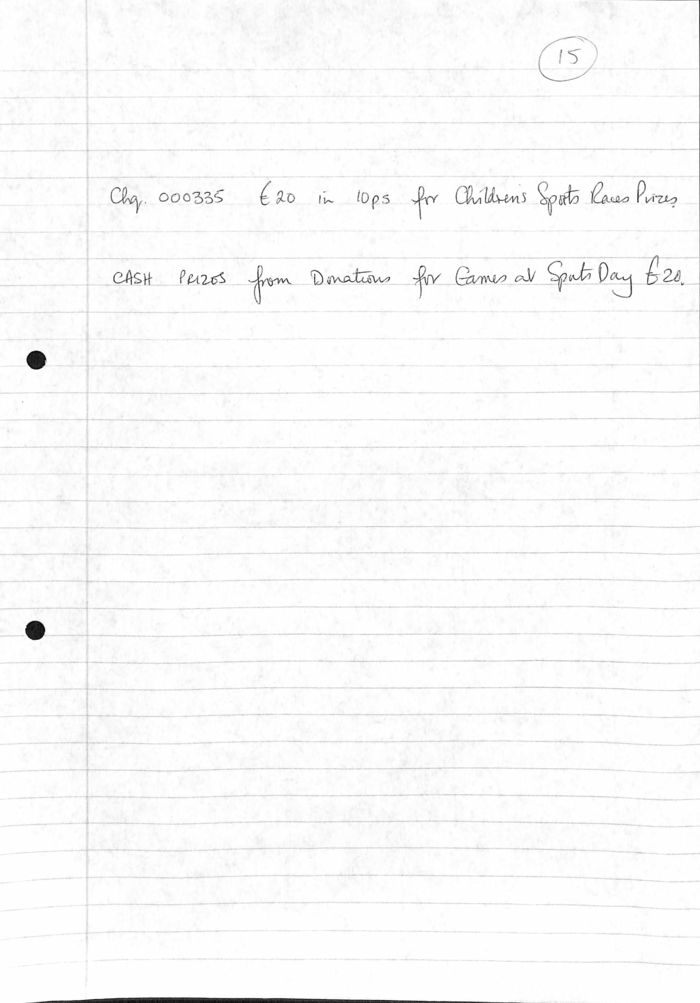 15
Chq. 000335 £20 in 10ps for Children's Sports Races Prizes
CASH PRIZES from Donations for Games at Sports Day £20.